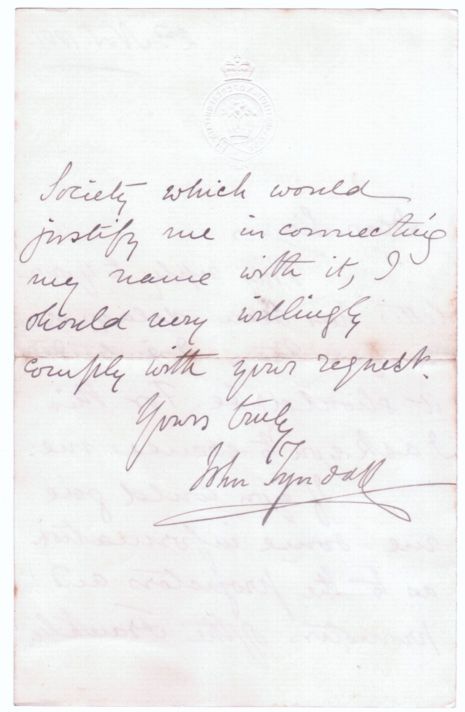 Society which would
justify me in connecting
my name with it, I
should very willingly
comply with your request.
Yours truly
John Tyndall